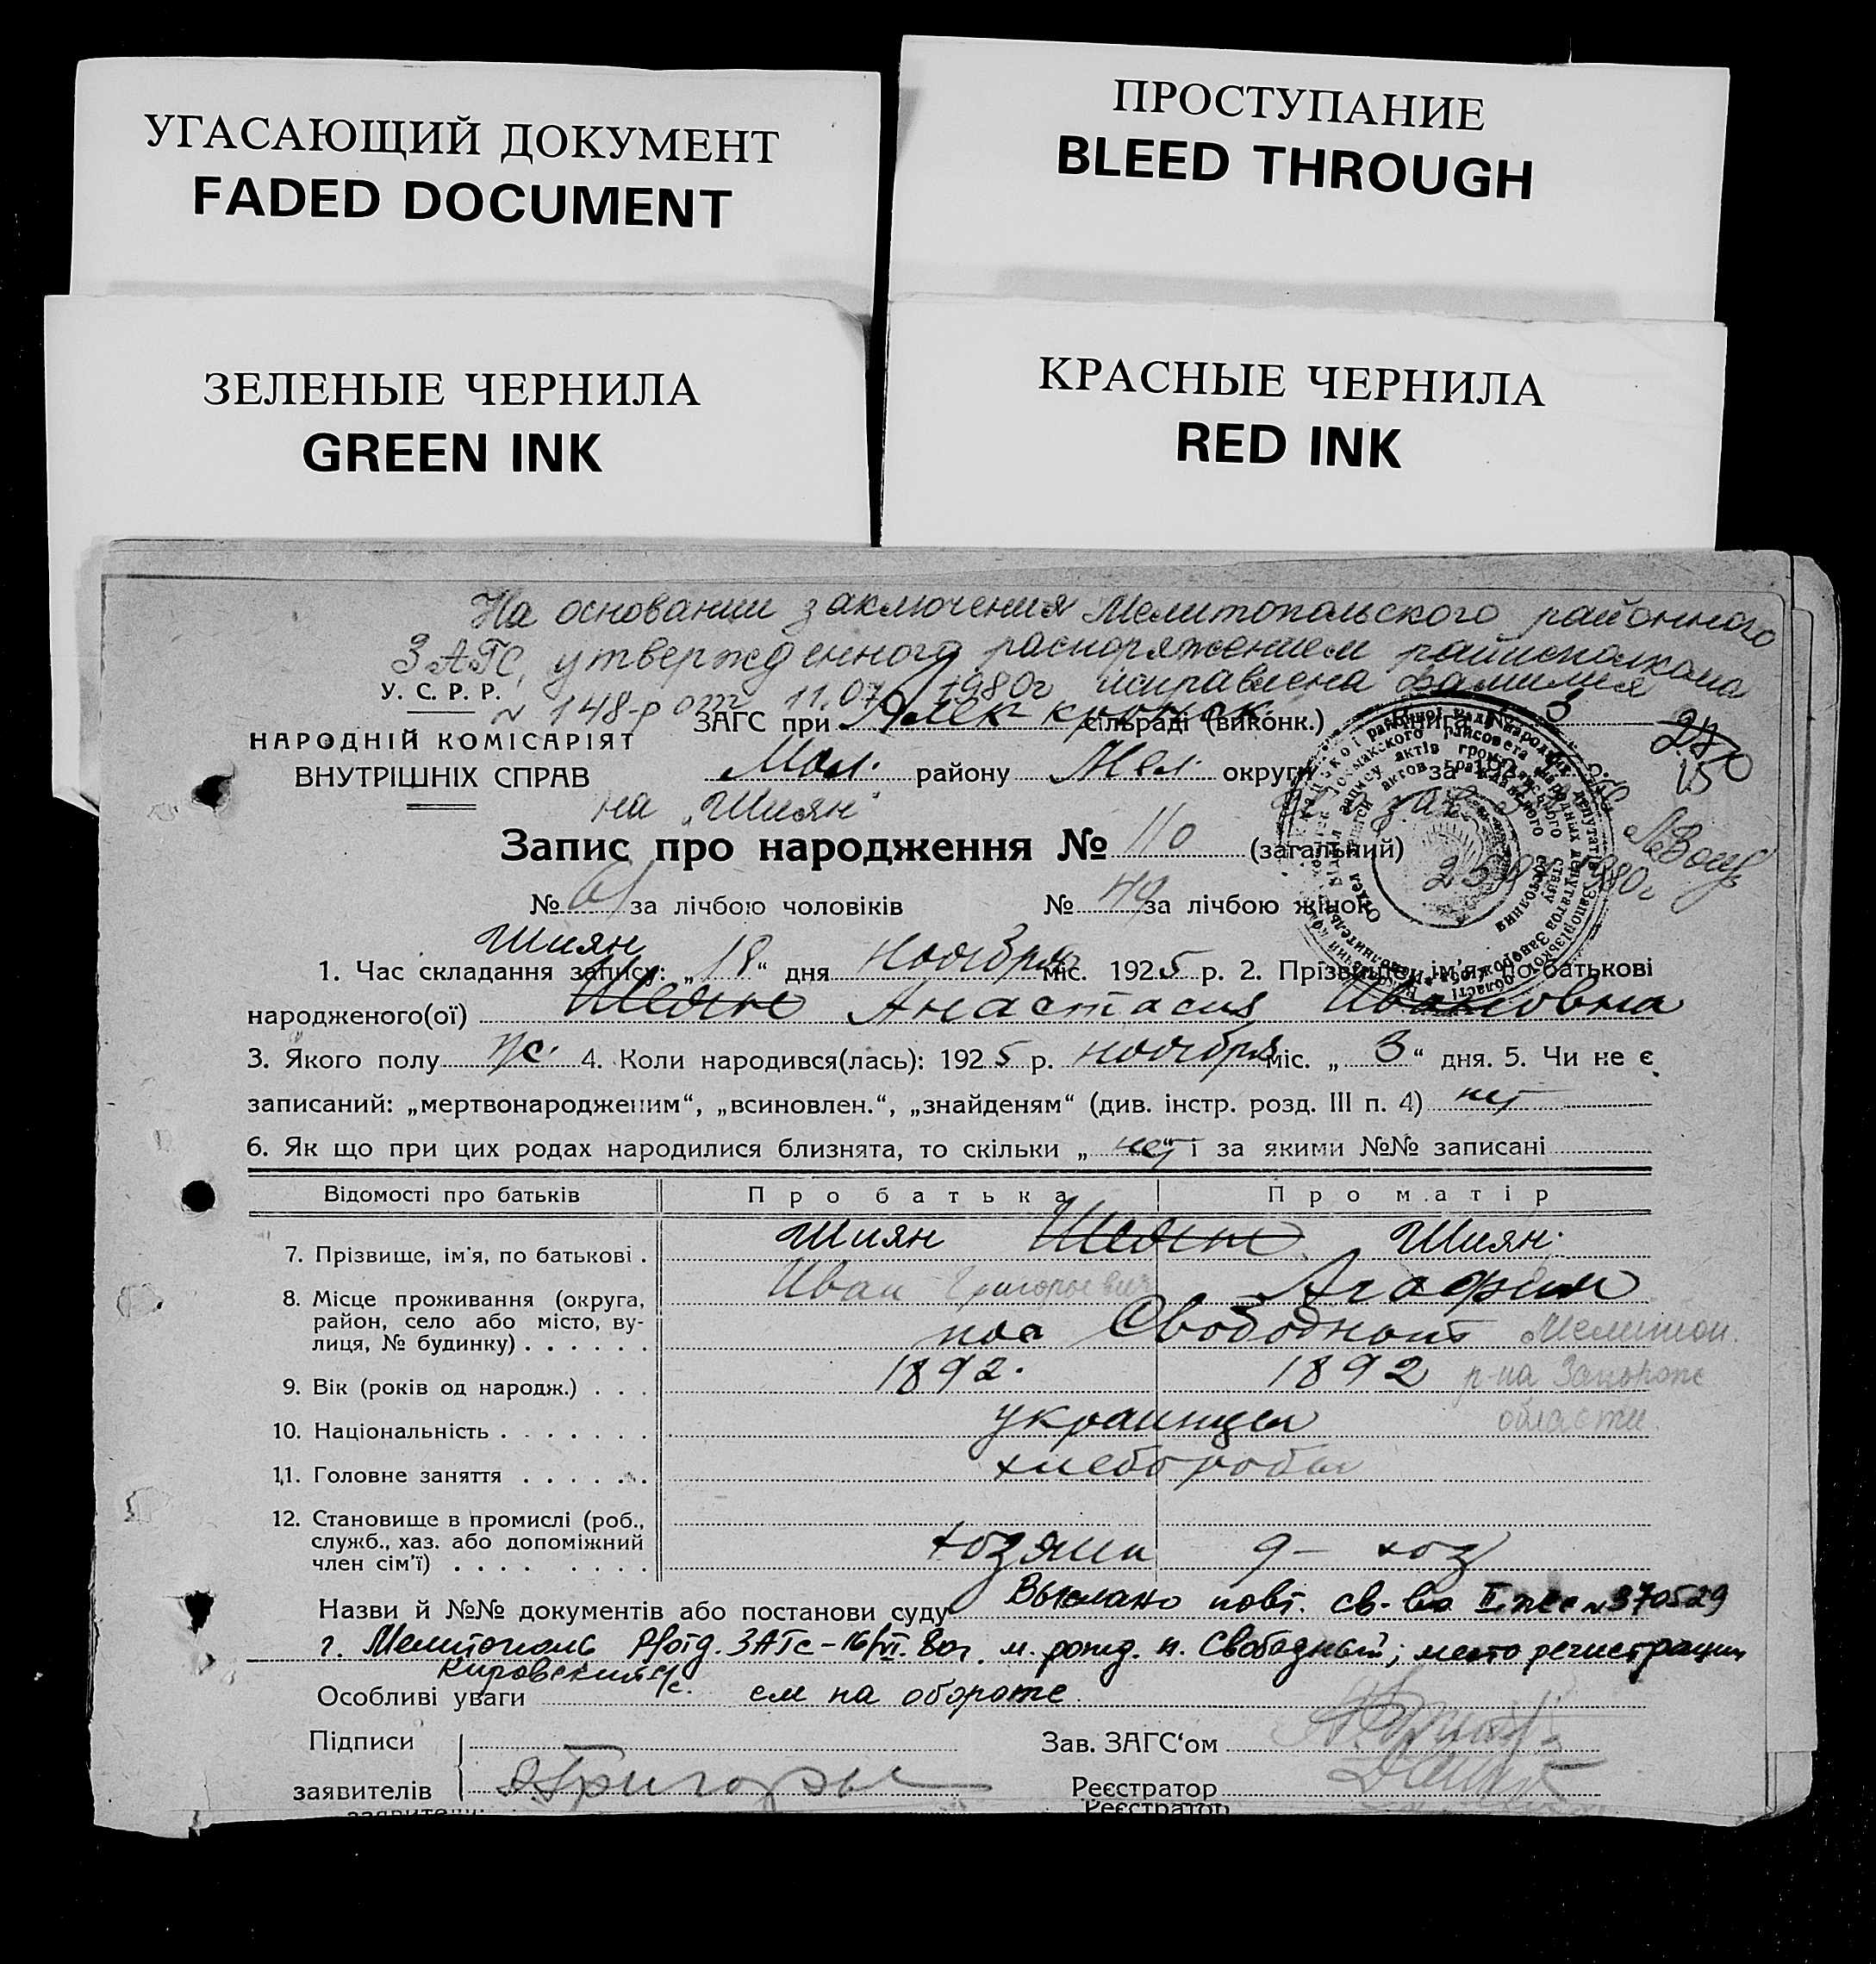 УГАСАЮЩИЙ ДОКУМЕНТ
FADED DOCUMENT
ПРОСТУПАНИЕ
BLEED THROUGH
ЗЕЛЕНЫЕ ЧЕРНИЛА
GREEN INK
КРАСНЫЕ ЧЕРНИЛА
RED INK
На основании заключения Мелитопольского районного
ЗАГС, утвержденного распоряжением райисполкома
№ 148-р от 11.07 1980г исправлена фамилия
У. С. Р. Р.
ЗАГС при сільраді (виконк.) Книга № 3
НАРОДНІЙ КОМІСАРІЯТ
ВНУТРІШНІХ СПРАВ
Мол. району Мел. округи за 192
на "Шиян"
Запис про народження № 110 (загальний)
№ 61 за лічбою чоловіків № 49 за лічбою жінок
Шиян
1. Час складання запису: „18“ дня ноября міс. 1925 р. 2. Прізвище, ім'я, по батькові
народженого(ої) Шеянс Анастасия Ивановна
3. Якого полу ж. 4. Коли народився(лась): 1925 р. ноября міс. „3“ дня. 5. Чи не є
записаний: „мертвонародженим“, „всиновлен.“, „знайденям“ (див. інстр. розд. III п. 4) нет
6. Як що при цих родах народилися близнята, то скільки „нет“ і за якими №№ записані
Відомості про батьків Про батька Про матір
7. Прізвище, ім'я, по батькові . Шиян Шиян.
Иван Григорьевич Агафия
8. Місце проживання (округа,
район, село або місто, ву-
лиця, № будинку) . . . . . . пос Свободный Мелитоп.
9. Вік (років од народж.) . . . 1892. 1892 р-на Запорож
10. Національність . . . . . . . украинцы области
11. Головне заняття . . . . . . хлеборобы
12. Становище в промислі (роб.,
служб., хаз. або допоміжний
член сім'ї) . . . . . . . . хозяин д- хоз
Назви й №№ документів або постанови суду Выслано повт. св-во № 370529
г. Мелитополь ЗАГС - 16/VII. 80г. м. рожд. п. Свободный; место регистрации
Кировский с/с.
Особливі уваги см на обороте
Підписи Зав. ЗАГС‘ом
заявителів Реєстратор
Реєстратор